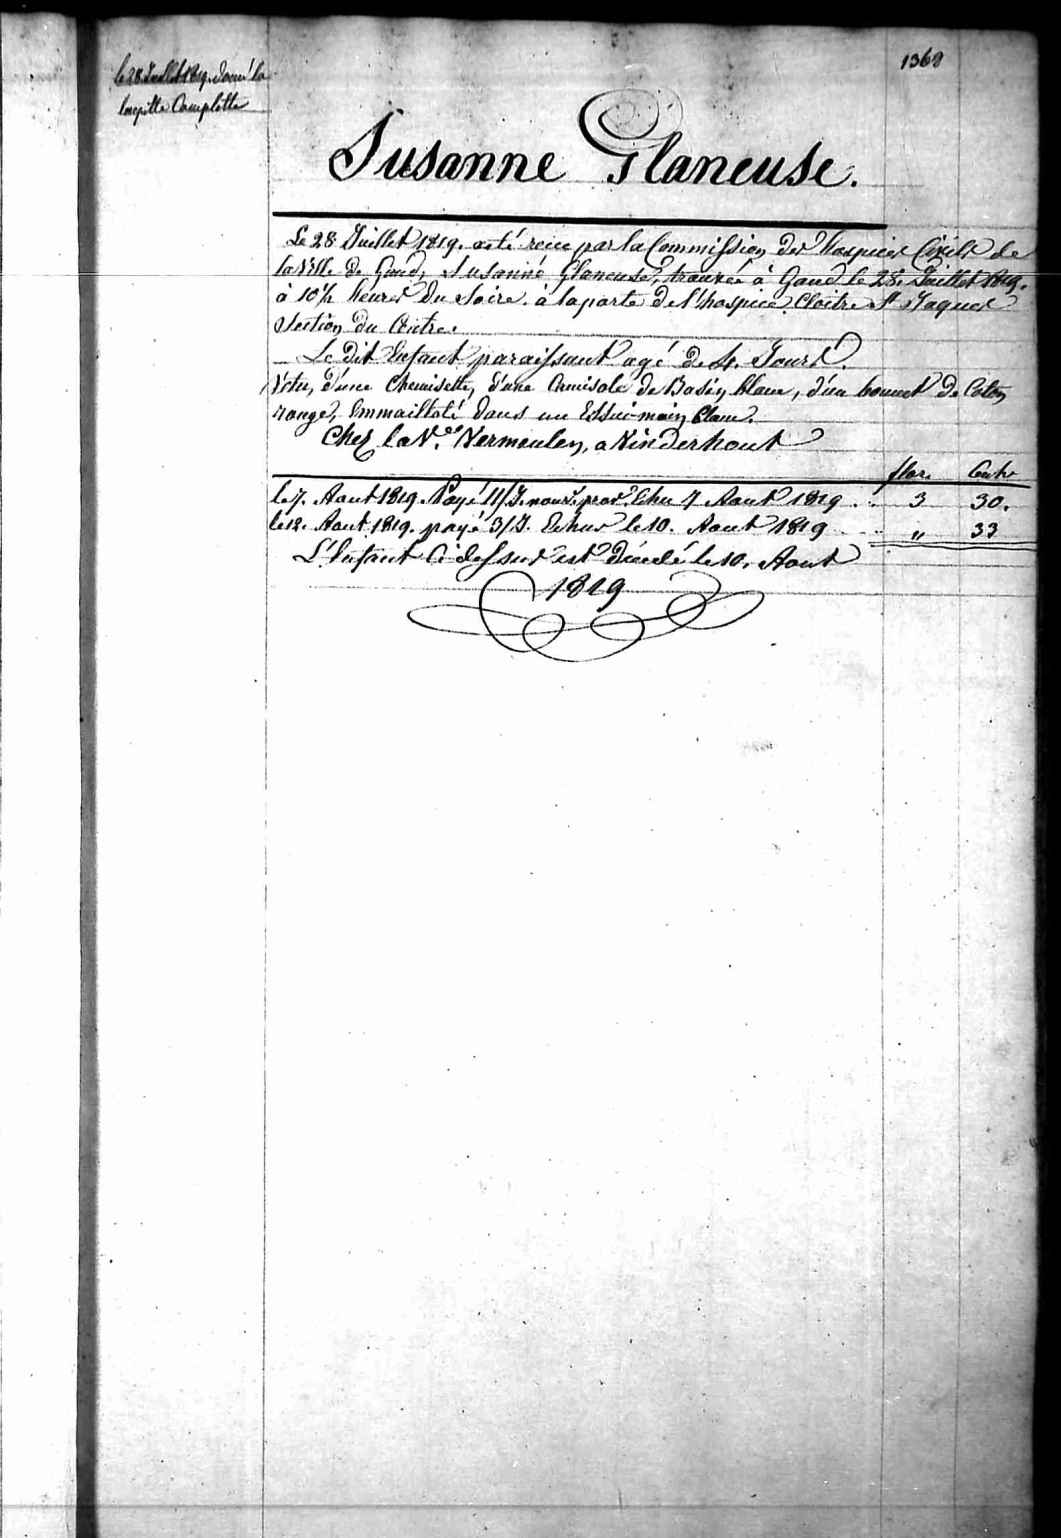 1368
le 28 Juillet 1819. donné la
laiyette Complette
Susanne Glaneuse.
Le 28 Juillet 1819. a eté reçue par la Commission des hospices Civils de
la Ville de Gand, Susanne Glaneuse, trouvée à Gand le 28. Juillet 1819.
à 10½ heures du Soire. à la porte de l'hospice Cloitre St Jaques
Section du Centre.
Le dit Enfant paraissant agé de 4. Jours.
Vetu, d'une Chemisette, d'une Camisole de Basin blanc, d'un bonnet de Coton
rouge, Emmailloté dans un Essui-main blanc.
Chez la Ve. Vermeulen, a Vinderhout
flor. Cents
le 7. Aout 1819. Payé 11/J. nours. prov. Echu 7 Aout 1819 . . 3 30.
le 12. Aout 1819. payé 3/J. Echus le 10. Aout 1819 . . " 33
L'Enfant Ci dessus est décédé le 10. Aout
1819